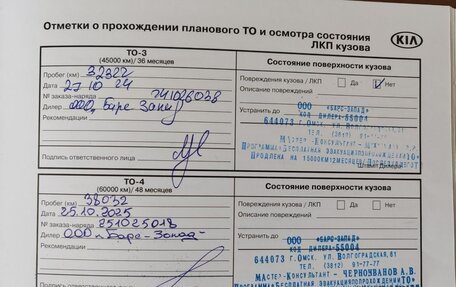 Отметки о прохождении планового ТО и осмотра состояния
ЛКП кузова
KIA
ТО-3
(45000 км)/ 36 месяцев
Состояние поверхности кузова
Пробег (км) 32322
Повреждения кузова / ЛКП Да Нет
Дата 27 10 24
Описание повреждений
№ заказа-наряда 241026038
Дилер ООО, Барс Запад
Устранить до
ООО «БАРС-ЗАПАД»
КОД ДИЛЕРА-55004
Рекомендации
644073 г.Омск,
Мастер-Консультант -
Программа«Бесплатная эвакуацияпропрохожденииТО»
Продлена на 15000км12месяцев
Подпись ответственного лица
Штамп Дилера
ТО-4
(60000 км)/ 48 месяцев
Состояние поверхности кузова
Пробег (км) 38032
Повреждения кузова / ЛКП Да Нет
Дата 25.10.2025
Описание повреждений
№ заказа-наряда 251025018
Дилер ООО «Барс-Запад»
Устранить до
ООО «БАРС-ЗАПАД»
КОД ДИЛЕРА-55004
Рекомендации
644073 г.Омск, ул. ВОЛГОГРАДСКАЯ, 61
ТЕЛ. (3812) 91-77-77
Мастер-Консультант - ЧЕРНОИВАНОВ А.В.